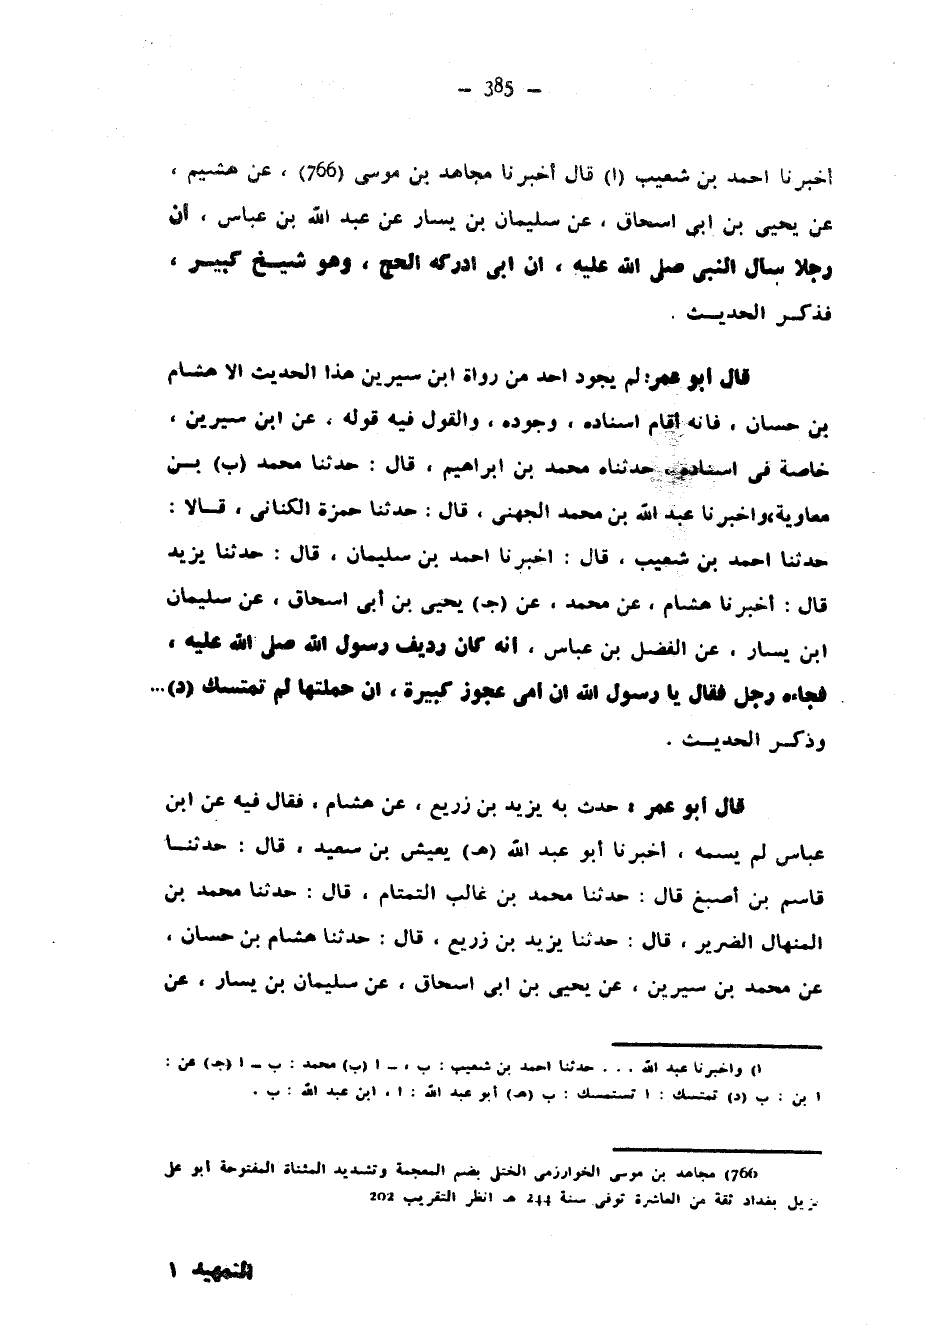 — 385 —
أخبرنا احمد بن شعيب (ا) قال أخبرنا مجاهد بن موسى (766) ، عن هشيم ،
عن يحيى بن ابى اسحاق ، عن سليمان بن يسار عن عبد الله بن عباس ، أن
رجلا سال النبى صلى الله عليه ، ان ابى ادركه الحج ، وهو شيـخ كبيـر ،
فذكـر الحديـث .
قال أبو عمر: لم يجود احد من رواة ابن سيرين هذا الحديث الا هشام
بن حسان ، فانه أقام اسناده ، وجوده ، والقول فيه قوله ، عن ابن سيرين ،
خاصة فى اسناده، حدثناه محمد بن ابراهيم ، قال : حدثنا محمد (ب) بـن
معاوية،واخبرنا عبد الله بن محمد الجهنى ، قال : حدثنا حمزة الكنانى ، قـالا :
حدثنا احمد بن شعيب ، قال : اخبرنا احمد بن سليمان ، قال : حدثنا يزيد
قال : أخبرنا هشام ، عن محمد ، عن (جـ) يحيى بن أبى اسحاق ، عن سليمان
ابن يسار ، عن الفضل بن عباس ، انه كان رديف رسول الله صلى الله عليه ،
فجاءه رجل فقال يا رسول الله ان امى عجوز كبيرة ، ان حملتها لم تمتسك (د)...
وذكـر الحديـث .
قال أبو عمر : حدث به يزيد بن زريع ، عن هشام ، فقال فيه عن ابن
عباس لم يسمه ، أخبرنا أبو عبد الله (هـ) يعيش بن سعيد ، قال : حدثنـا
قاسم بن أصبغ قال : حدثنا محمد بن غالب التمتام ، قال : حدثنا محمد بن
المنهال الضرير ، قال : حدثنا يزيد بن زريع ، قال : حدثنا هشام بن حسان ،
عن محمد بن سيرين ، عن يحيى بن ابى اسحاق ، عن سليمان بن يسار ، عن
ا) واخبرنا عبد الله . . . حدثنا احمد بن شعيب : ب ، ـ ا (ب) محمد : ب ـ ا (جـ) عن :
ا بن : ب (د) تمتسك : ا تستمسك : ب (هـ) أبو عبد الله : ا ، ابن عبد الله : ب .
766) مجاهد بن موسى الخوارزمى الختلى بضم المعجمة وتشديد المثناة المفتوحة أبو على
نزيل بغداد ثقة من العاشرة توفى سنة 244 هـ انظر التقريب 202
التمهيد ١